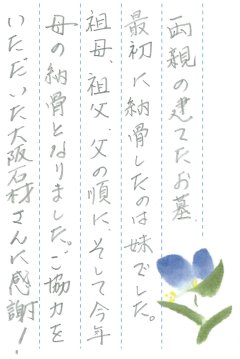 両親の建てたお墓、
最初に納骨したのは妹でした。
祖母、祖父、父の順に、そして今年
母の納骨となりました。ご協力を
いただいた大阪石材さんに感謝!